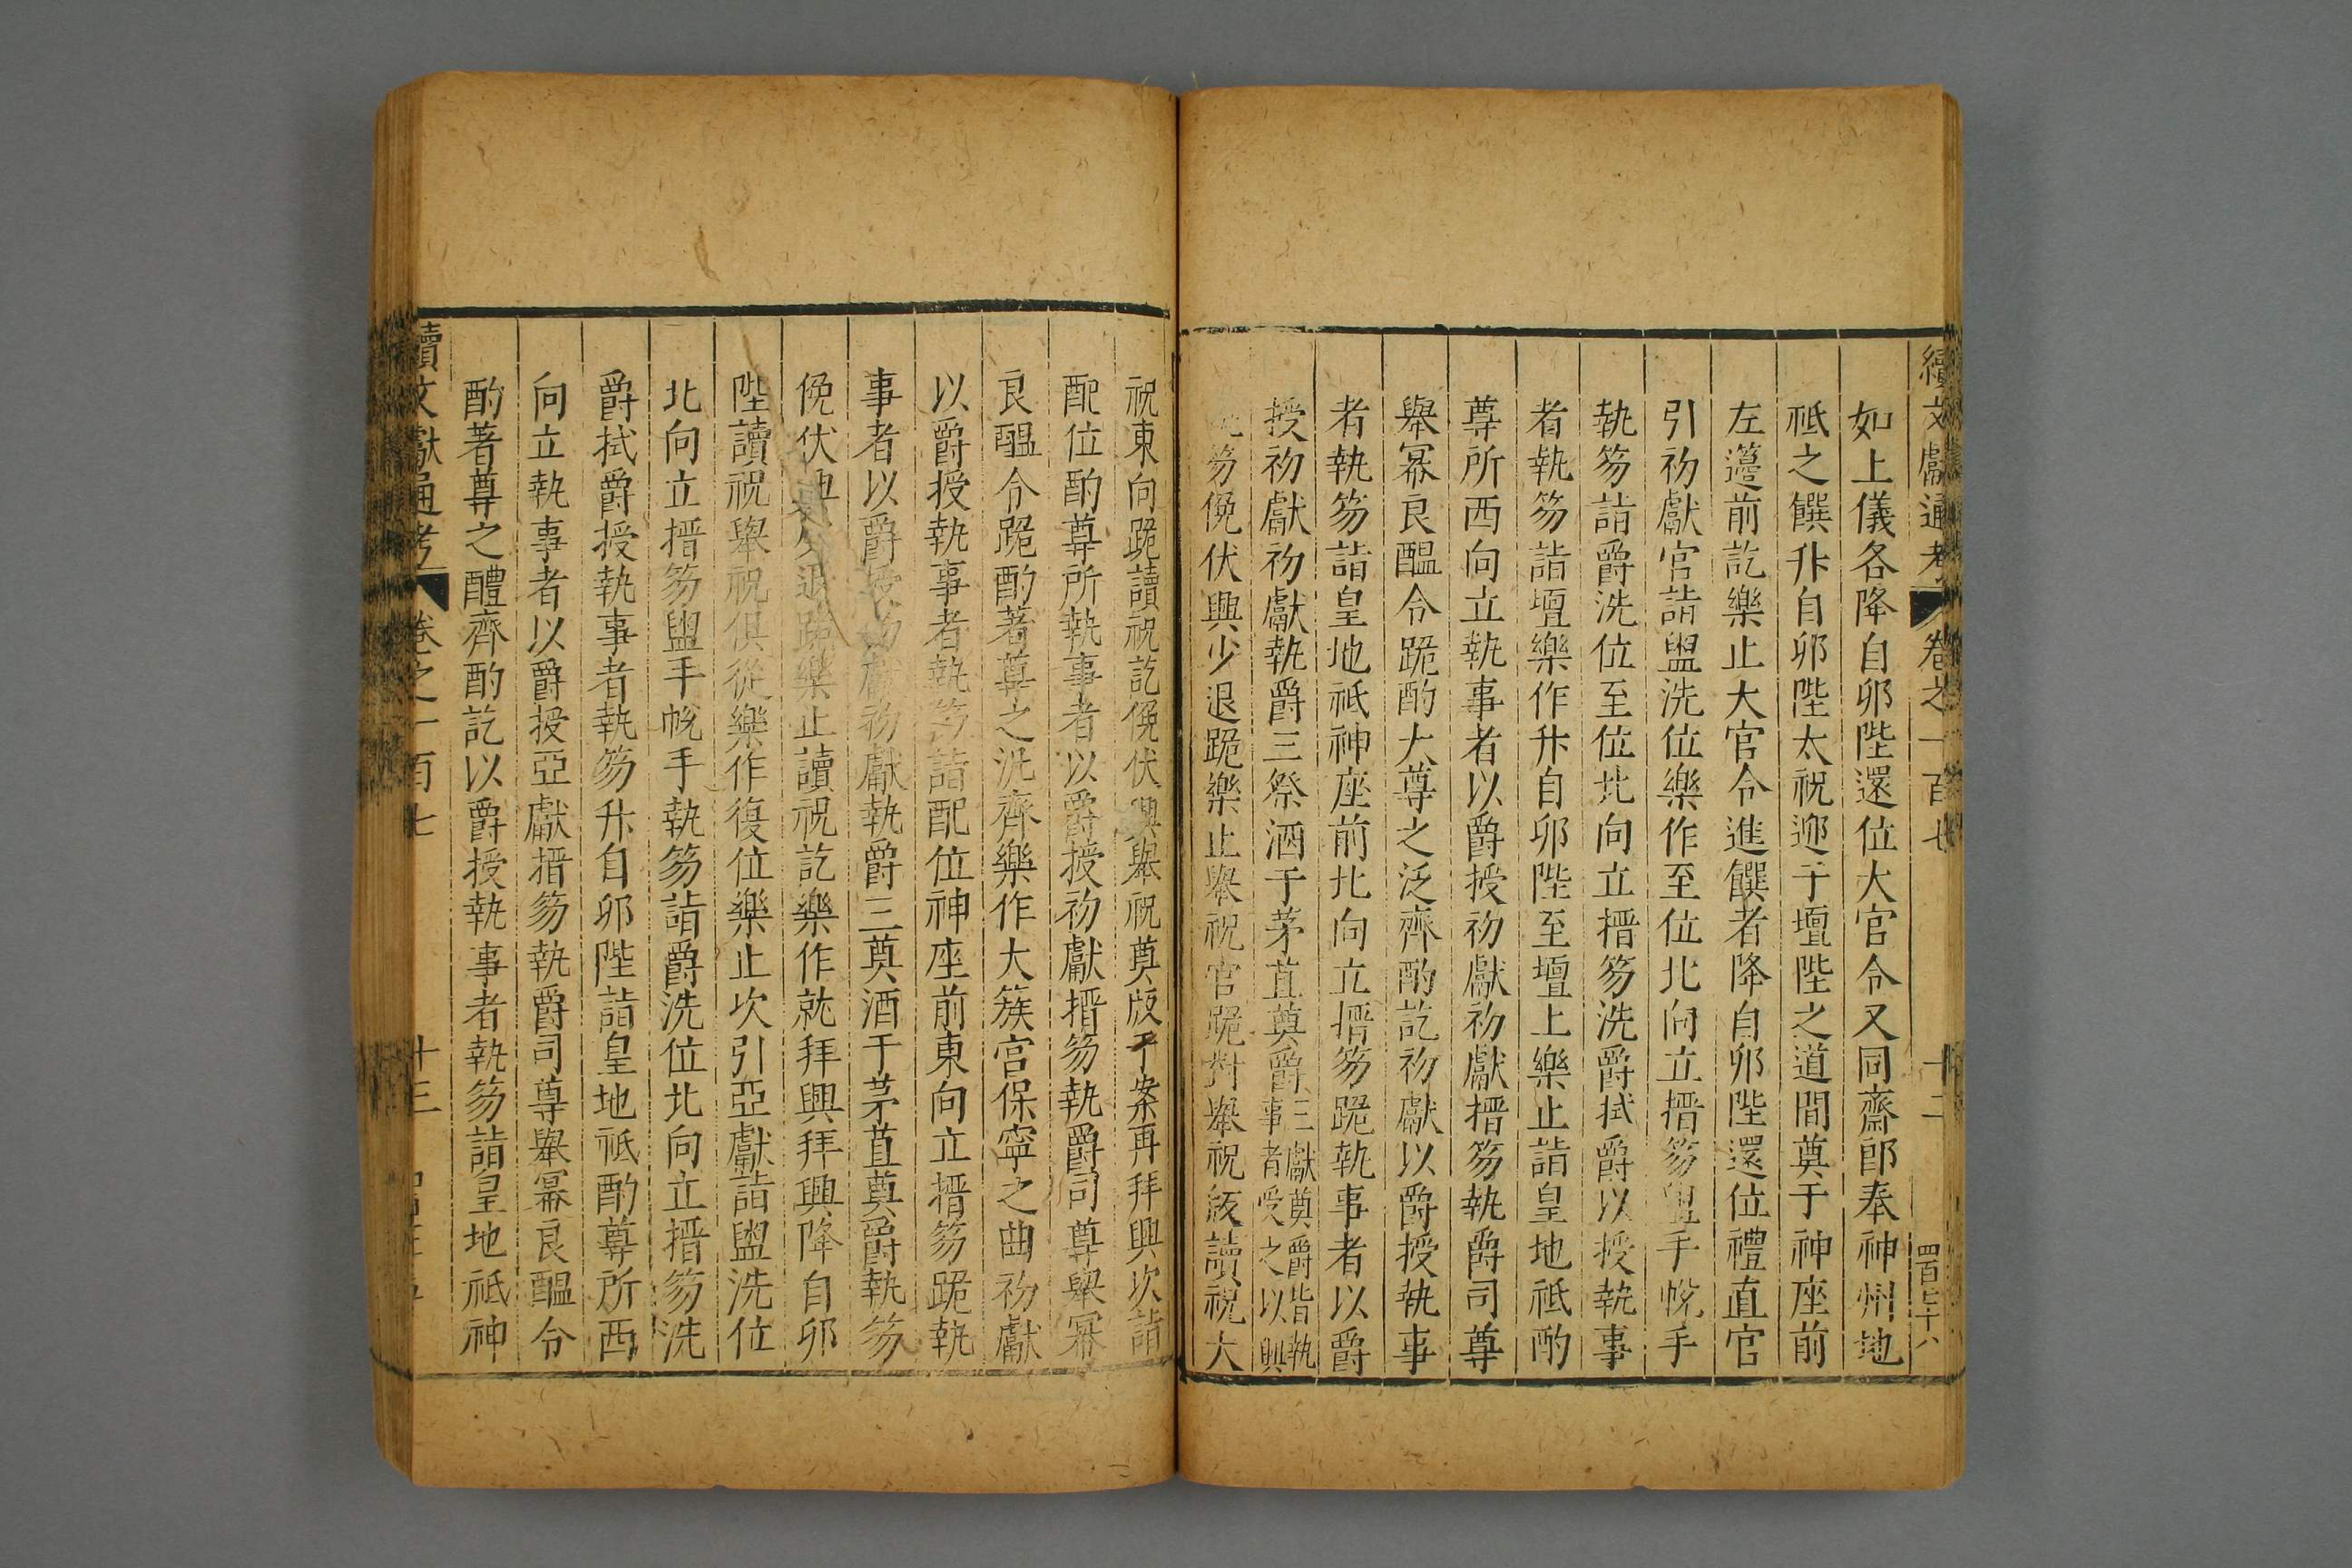 續文獻通考 卷之一百七 十二 四百七十八
如上儀各降自卯陛還位大官令又同齋郎奉神州地
祗之饌升自卯陛太祝迎于壇陛之道間奠于神座前
左籩前訖樂止大官令進饌者降自卯陛還位禮直官
引初獻官詣盥洗位樂作至位北向立搢笏盥手帨手
執笏詣爵洗位至位北向立搢笏洗爵拭爵以授執事
者執笏詣壇樂作升自卯陛至壇上樂止詣皇地祗酌
尊所西向立執事者以爵授初獻初獻搢笏執爵司尊
舉冪良醞令跪酌大尊之泛齊酌訖初獻以爵授執事
者執笏詣皇地祗神座前北向立搢笏跪執事者以爵
授初獻初獻執爵三祭酒于茅苴奠爵三獻奠爵皆執事者受之以興
笏俛伏興少退跪樂止舉祝官跪對舉祝版讀祝大
祝東向跪讀祝訖俛伏興舉祝奠版于案再拜興次詣
配位酌尊所執事者以爵授初獻搢笏執爵司尊舉冪
良醞令跪酌著尊之汎齊樂作大簇宮保寧之曲初獻
以爵授執事者執笏詣配位神座前東向立搢笏跪執
事者以爵授初獻初獻執爵三奠酒于茅苴奠爵執笏
俛伏興少退跪樂止讀祝訖樂作就拜興拜興降自卯
陛讀祝舉祝俱從樂作復位樂止次引亞獻詣盥洗位
北向立搢笏盥手帨手執笏詣爵洗位北向立搢笏洗
爵拭爵授執事者執笏升自卯陛詣皇地祗酌尊所西
向立執事者以爵授亞獻搢笏執爵司尊舉冪良醞令
酌著尊之醴齊酌訖以爵授執事者執笏詣皇地祗神
續文獻通考 卷之一百七 十三